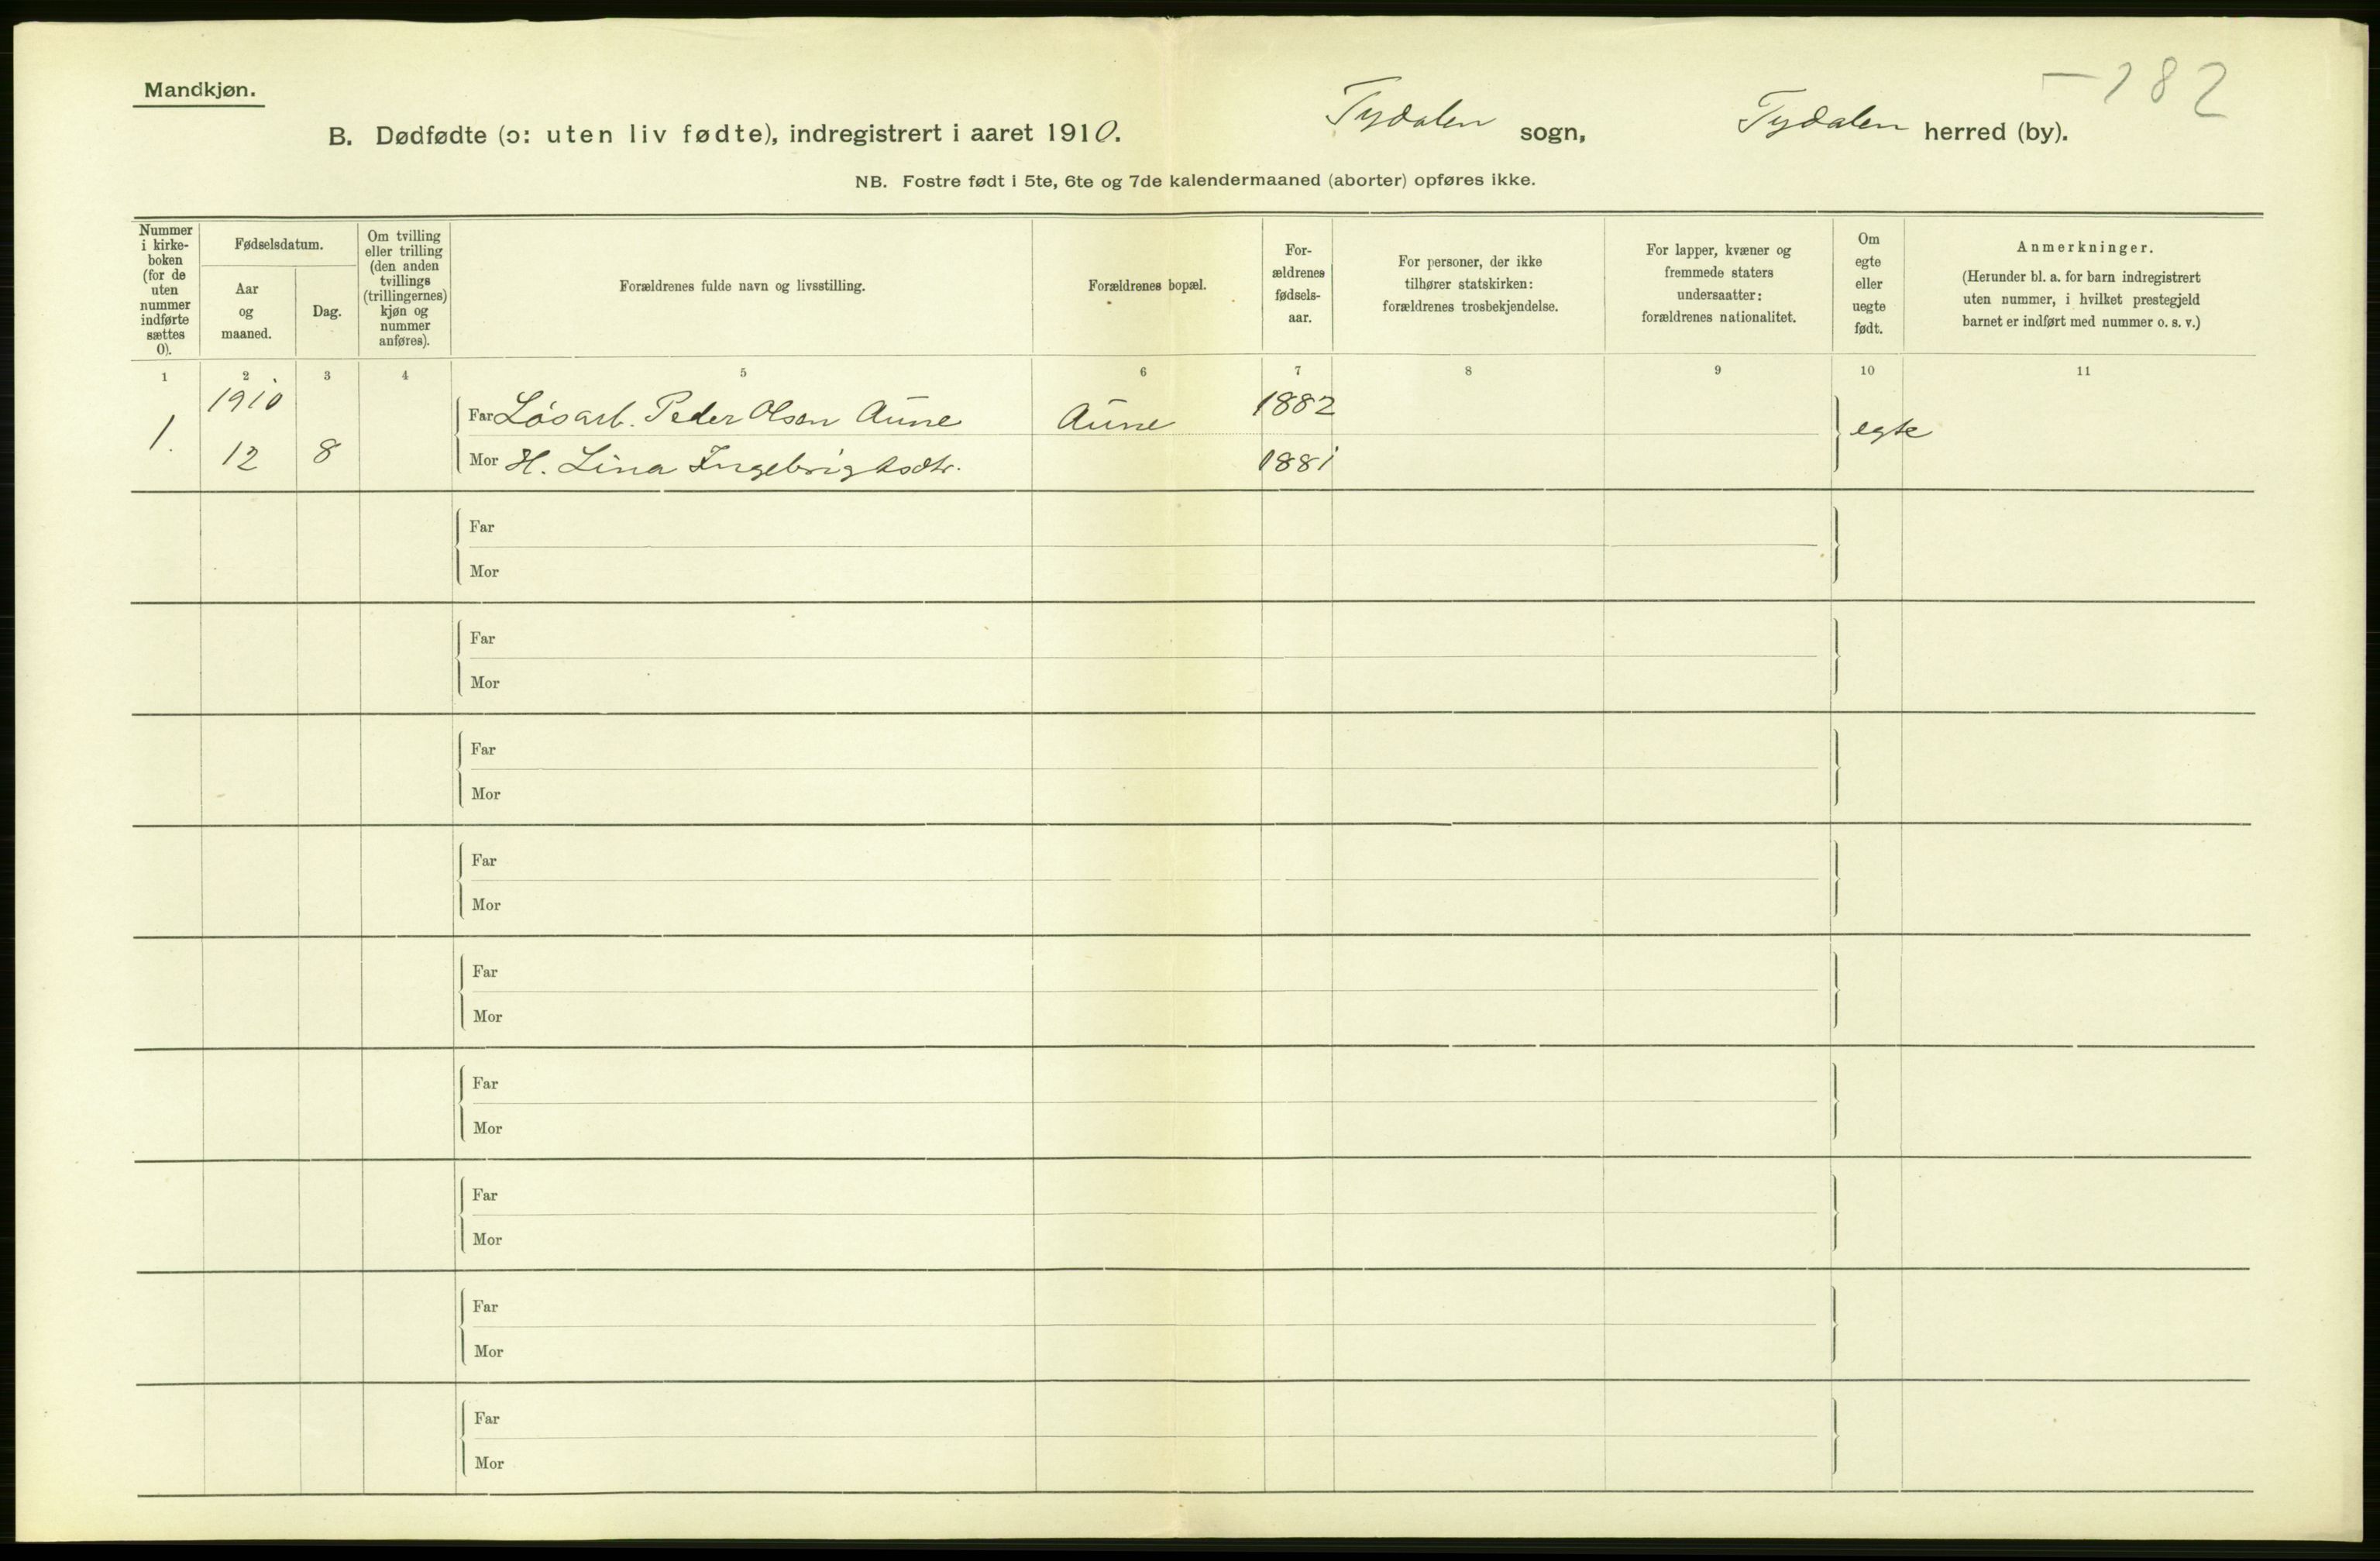 Mandkjøn.
-182
B. Dødfødte (ɔ: uten liv fødte), indregistrert i aaret 1910. Tydalen sogn, Tydalen herred (by).
NB. Fostre født i 5te, 6te og 7de kalendermaaned (aborter) opføres ikke.
Nummer
i kirke-
boken
(for de
uten
nummer
indførte
sættes
0).
Fødselsdatum.
Aar
og
maaned.
Dag.
Om tvilling
eller trilling
(den anden
tvillings
(trillingernes)
kjøn og
nummer
anføres).
Forældrenes fulde navn og livsstilling.
Forældrenes bopæl.
For-
ældrenes
fødsels-
aar.
For personer, der ikke
tilhører statskirken:
forældrenes trosbekjendelse.
For lapper, kvæner og
fremmede staters
undersaatter:
forældrenes nationalitet.
Om
egte
eller
uegte
født.
Anmerkninger.
(Herunder bl. a. for barn indregistrert
uten nummer, i hvilket prestegjeld
barnet er indført med nummer o. s. v.)
1 2 3 4 5 6 7 8 9 10 11
1910 Far Løsarb. Peder Olsen Aune Aune 1882
1. egte
12 8 Mor H. Lina Ingebrigtsdtr. 1881
Far
Mor
Far
Mor
Far
Mor
Far
Mor
Far
Mor
Far
Mor
Far
Mor
Far
Mor
Far
Mor